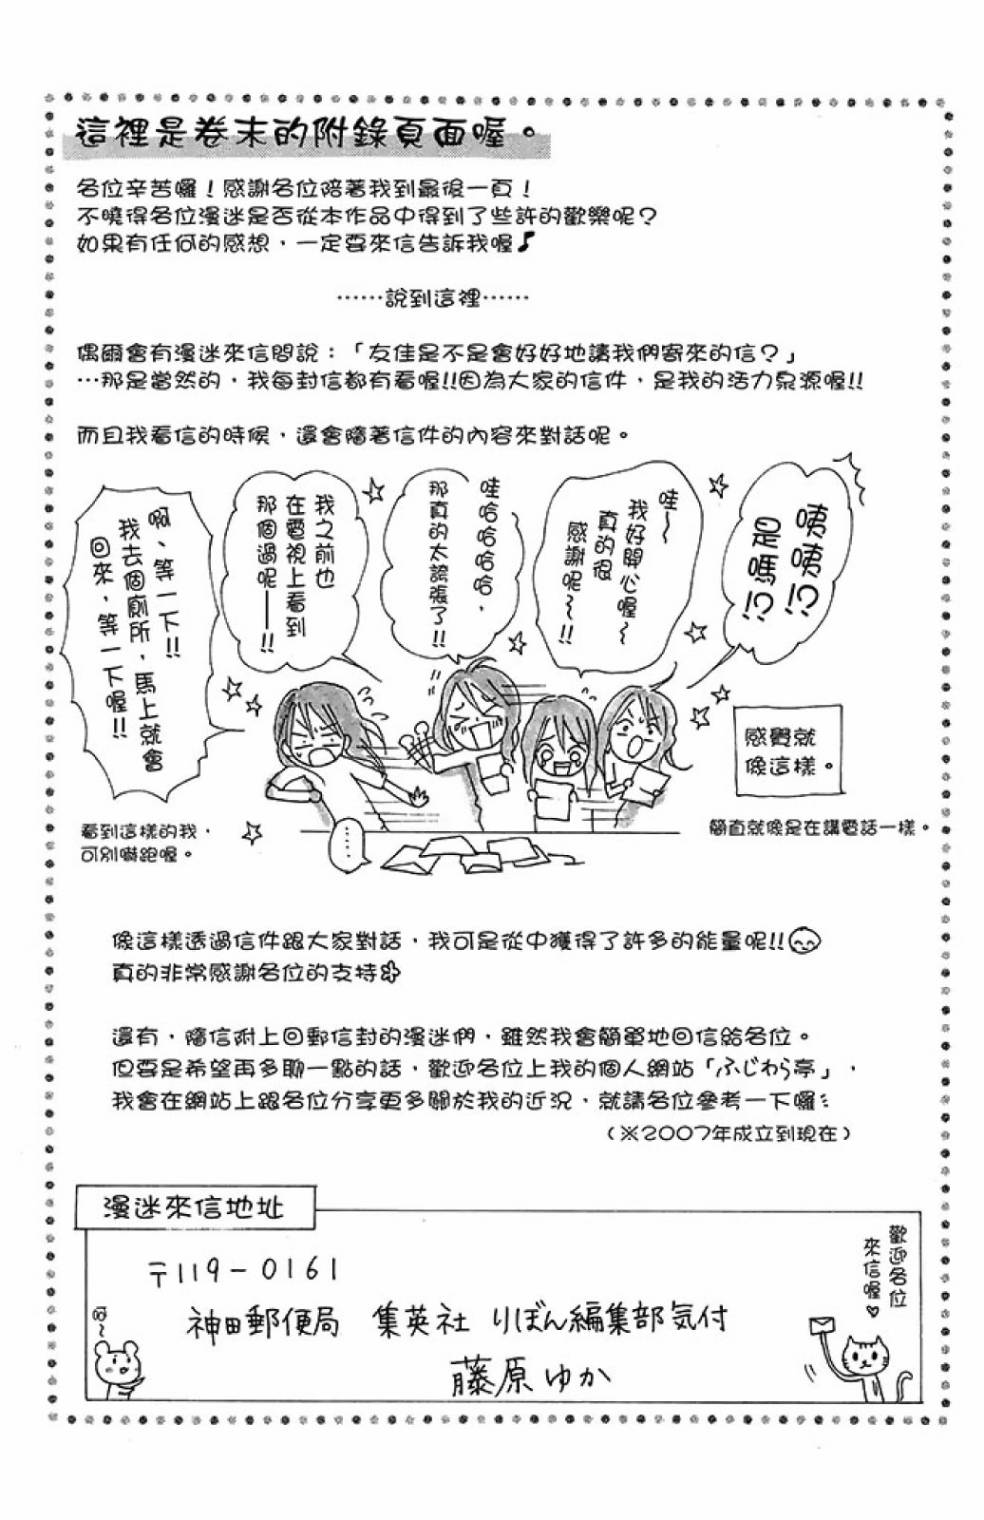 這裡是卷末的附錄頁面喔。
各位辛苦囉!感謝各位陪著我到最後一頁!
不曉得各位漫迷是否從本作品中得到了些許的歡樂呢?
如果有任何的感想,一定要來信告訴我喔♪
……說到這裡……
偶爾會有漫迷來信問說:「友佳是不是會好好地讀我們寄來的信?」
…那是當然的,我每封信都有看喔!!因為大家的信件,是我的活力泉源喔!!
而且我看信的時候,還會隨著信件的內容來對話呢。
咦咦!?
是嗎!?
哇~
我好開心喔~
真的很
感謝呢~!!
哇哈哈哈哈,
那真的太誇張了!!
我之前也
在電視上看到
那個過呢──!!
啊、等一下!!
我去個廁所,馬上就會
回來,等一下喔!!
感覺就
像這樣。
簡直就像是在講電話一樣。
看到這樣的我,
可別嚇跑喔。
……
像這樣透過信件跟大家對話,我可是從中獲得了許多的能量呢!!
真的非常感謝各位的支持
還有,隨信附上回郵信封的漫迷們,雖然我會簡單地回信給各位。
但要是希望再多聊一點的話,歡迎各位上我的個人網站「ふじわら亭」,
我會在網站上跟各位分享更多關於我的近況,就請各位參考一下囉
(※2007年成立到現在)
漫迷來信地址
〒119-0161
神田郵便局 集英社 りぼん編集部気付
藤原ゆか
歡迎各位
來信喔♥